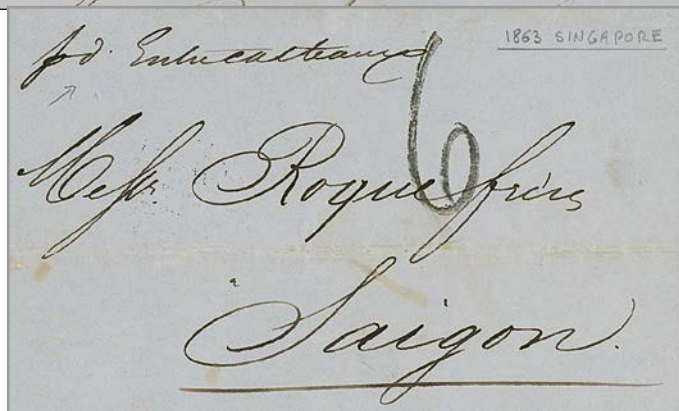 pd. Entrecasteaux
1863 SINGAPORE
6
Messrs. Roque frères
Saigon.